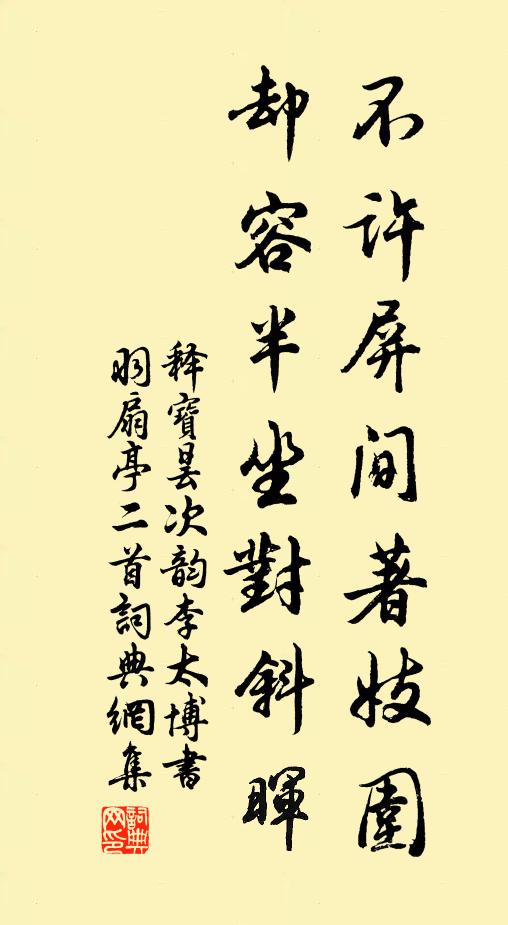 不许屏间著妓圍
却容半坐對斜暉
释寶昙次韵李太博書
羽扇亭二首詞典網集
詞典網印